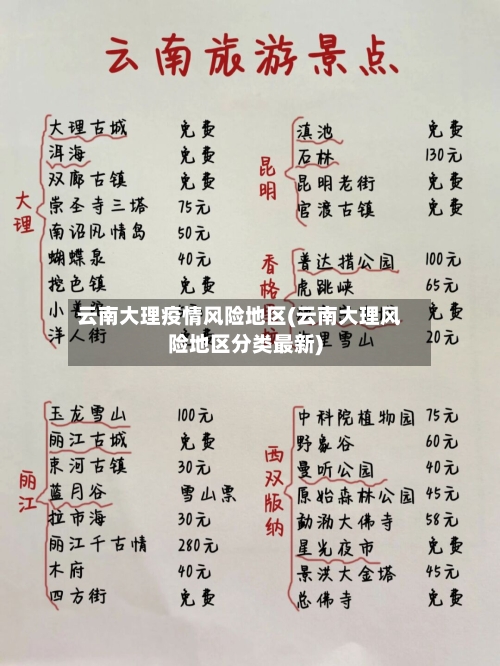 云南旅游景点
大理
大理古城 免费
洱海 免费
双廊古镇 免费
崇圣寺三塔 75元
南诏风情岛 50元
蝴蝶泉 40元
挖色镇
小
洋人街 免费
昆明
滇池 免费
石林 130元
昆明老街 免费
官渡古镇 免费
香格
普达措公园 100元
虎跳峡 65元
雪山 20元
云南大理疫情风险地区(云南大理风
险地区分类最新)
丽江
玉龙雪山 100元
丽江古城 免费
束河古镇 30元
蓝月谷 雪山票
拉市海 30元
丽江千古情 280元
木府 40元
四方街 免费
西双版纳
中科院植物园 75元
野象谷 60元
曼听公园 40元
原始森林公园 45元
勐泐大佛寺 58元
星光夜市 免费
景洪大金塔 45元
总佛寺 免费